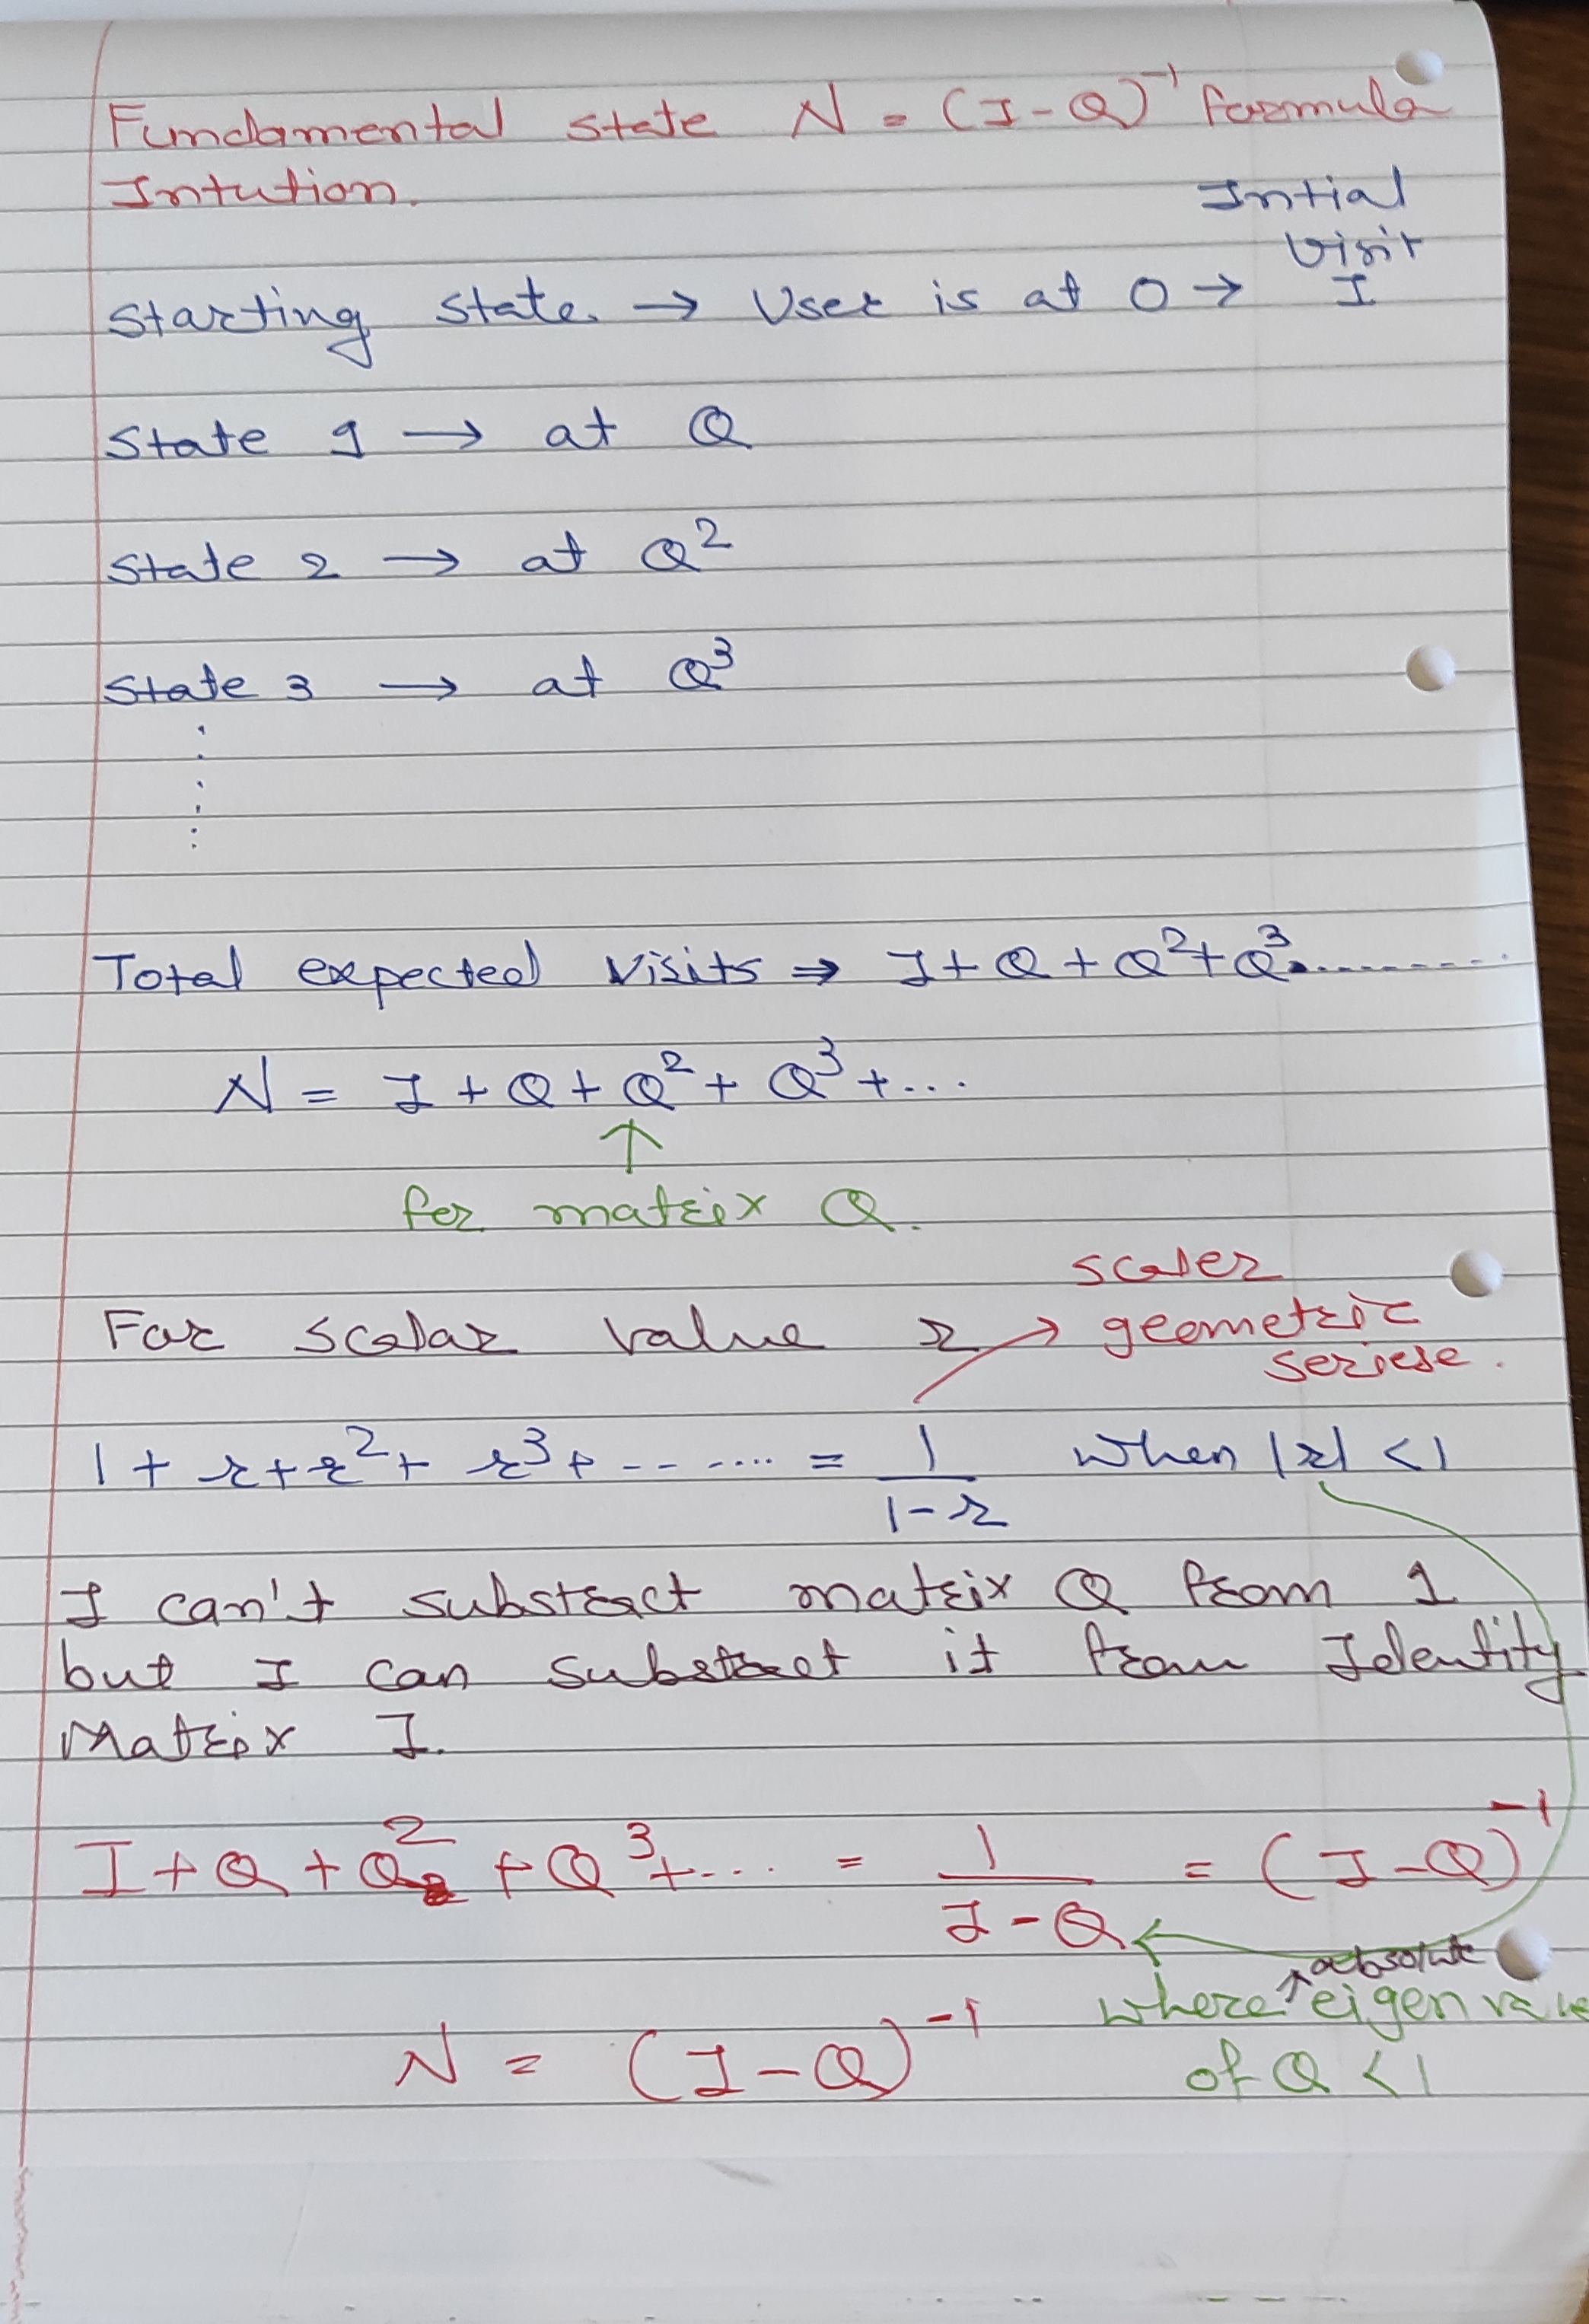 Fundamental state N = (I-Q)⁻¹ formula
Intution.
Intial
visit
Starting state → User is at 0 → I
State 1 → at Q
State 2 → at Q²
State 3 → at Q³
Total expected visits ⇒ I + Q + Q² + Q³.........
N = I + Q + Q² + Q³ + ...
↑
for matrix Q.
scaler
For scalar value r → geometric
seriese.
1 + r + r² + r³ + ....... = 1/(1-r) when |r| < 1
I can't substract matrix Q from 1
but I can substract it from Identity
Matrix I.
I + Q + Q² + Q³ + ... = 1/(I-Q) = (I-Q)⁻¹
absolute
where ↑ eigen value
N = (I-Q)⁻¹ of Q < 1